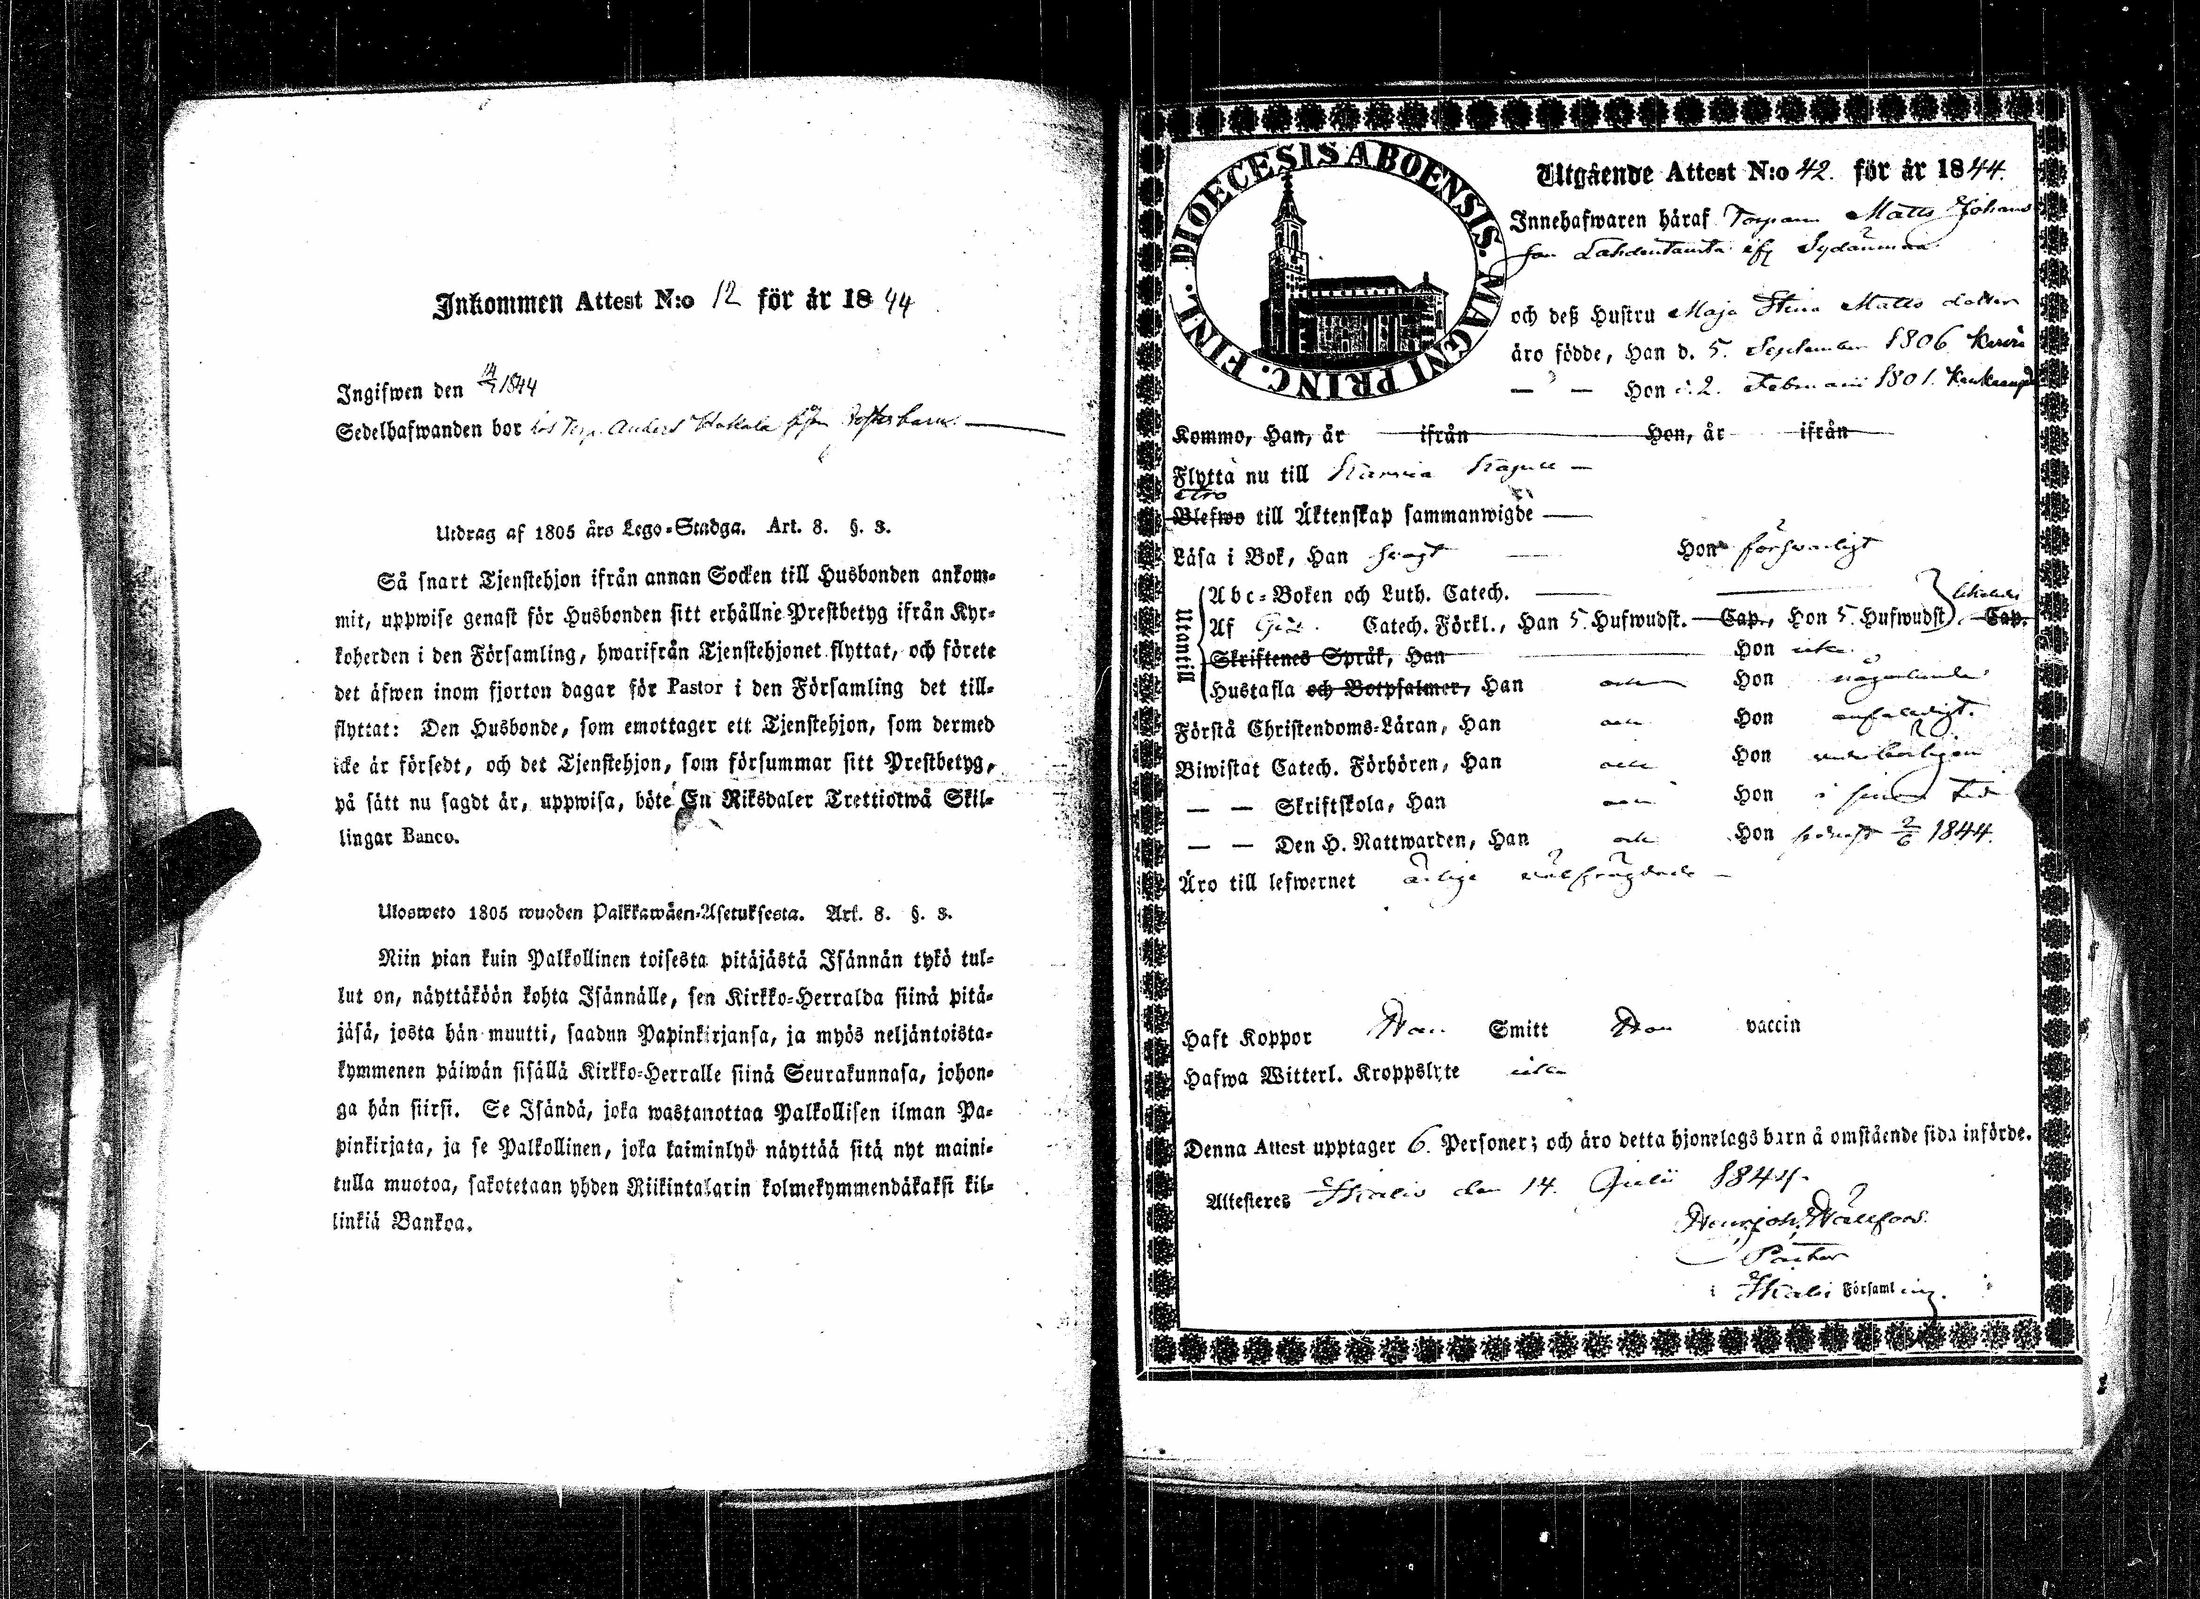 Inkommen Attest N:o 12 för år 1844
Ingifwen den 14/7 1844
Sedelhafwanden bor hos Torp. Anders
Utdrag af 1805 års Lego-Stadga. Art. 8. §. 3.
Så snart Tjenstehjon ifrån annan Socken till Husbonden ankom-
mit, uppwise genast för Husbonden sitt erhållne Prestbetyg ifrån Kyr-
koherden i den Församling, hwarifrån Tjenstehjonet flyttat, och förete
det äfwen inom fjorton dagar för Pastor i den Församling det till-
flyttat: Den Husbonde, som emottager ett Tjenstehjon, som dermed
icke är försedt, och det Tjenstehjon, som försummar sitt Prestbetyg,
på sätt nu sagdt är, uppwisa, böte En Riksdaler Trettiotwå Skil-
lingar Banco.
Ulosweto 1805 wuoden Palkkawäen-Asetuksesta. Art. 8. §. 3.
Niin pian kuin Palkollinen toisesta pitäjästä Isännän tykö tul-
lut on, näyttäköön kohta Isännälle, sen Kirkko-Herralda siinä pitä-
jäsä, josta hän muutti, saadun Papinkirjansa, ja myös neljäntoista-
kymmenen päiwän sisällä Kirkko-Herralle siinä Seurakunnasa, johon-
ga hän siirsi. Se Isändä, joka wastanottaa Palkollisen ilman Pa-
pinkirjata, ja se Palkollinen, joka laiminlyö näyttää sitä nyt maini-
tulla muotoa, sakotetaan yhden Riikintalarin kolmekymmendäkaksi kil-
linkiä Bankoa.
DIOECESIS ABOENSIS. MAGNI PRINC. FINL.
Utgående Attest N:o 42. för år 1844.
Innehafwaren häraf Torparn Matts Johans
son Lahdentausta af Sydänmaa
och deß Hustru Maja Stina Matts dotter
äro födde, Han d. 5. September 1806
— — Hon d. 2. Februarii 1801.
Kommo, Han, år ifrån Hon, år ifrån
Flytta nu till
äro
Blefwo till Äktenskap sammanwigde —
Läsa i Bok, Han svagt — Hon försvarligt
Utantill
Abc-Boken och Luth. Catech. —
Af Catech. Förkl., Han 5. Hufwudst. Cap., Hon 5. Hufwudst. Cap.
Skriftenes Språk, Han Hon icke
Hustafla och Botpsalmer, Han och Hon någorlunda
Förstå Christendoms-Läran, Han och Hon enfaldigt.
Biwistat Catech. Förhören, Han och Hon vederbörligen
— — Skriftskola, Han och Hon i sinom tid
— — Den H. Nattwarden, Han och Hon senast 2/6 1844.
Äro till lefwernet ärlige välfrägdade —
Haft Koppor Han Smitt Hon vaccin
Hafwa Witterl. Kroppslyte icke
Denna Attest upptager 6. Personer; och äro detta hjonelags barn å omstående sida införde.
Attesteres Ikalis den 14. Julii 1844.
Pastor
i Ikalis Församling.